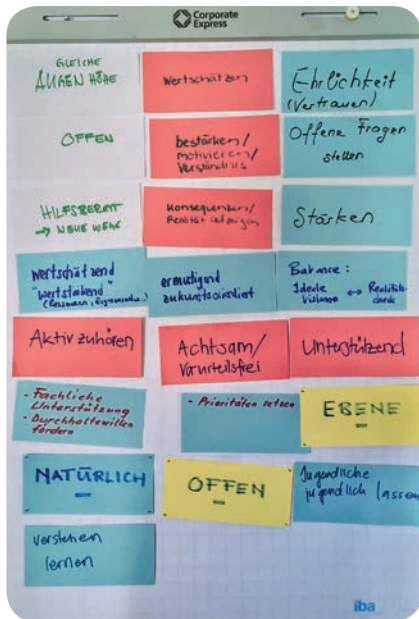 Corporate
Express
GLEICHE
AUGENHÖHE
Wertschätzen
Ehrlichkeit
(Vertrauen)
OFFEN
bestärken/
motivieren/
Verständnis
Offene Fragen
stellen
HILFSBEREIT
→ NEUE WEGE
Konsequenzen/
Realität aufzeigen
Stärken
wertschätzend
"wertstärkend"
(Ressourcen,
ermutigend
zukunftsorientiert
Balance:
Ideale
Visionen ↔ Realitäts-
check
Aktiv zuhören
Achtsam/
Vorurteilsfrei
Unterstützend
- Fachliche
Unterstützung
- Durchhaltewillen
fördern
- Prioritäten setzen
EBENE
NATÜRLICH
OFFEN
Jugendliche
jugendlich lassen
verstehen
lernen
iba